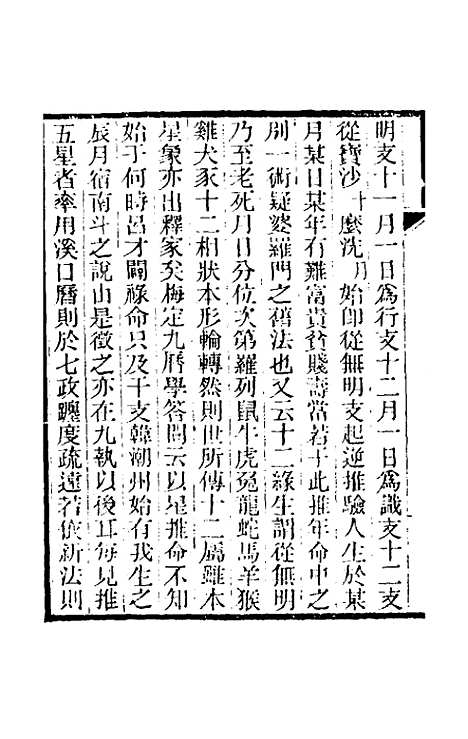 明支十一月一日為行支十二月一日為識支十二支
從寶沙十麼洗月始即從無明支起逆推驗人生於某
月某日某年有難富貴貧賤壽當若干此推年命中之
別一術疑婆羅門之舊法也又云十二緣生謂從無明
乃至老死月日分位次第羅列鼠牛虎兔龍蛇馬羊猴
雞犬豕十二相狀本形輪轉然則世所傳十二屬雖本
星象亦出釋家矣梅定九曆學答問云以星推命不知
始于何時呂才闢祿命只及干支韓潮州始有我生之
辰月宿南斗之說由是徵之亦在九執以後耳每見推
五星者率用溪口曆則於七政躔度疏遠若依新法則